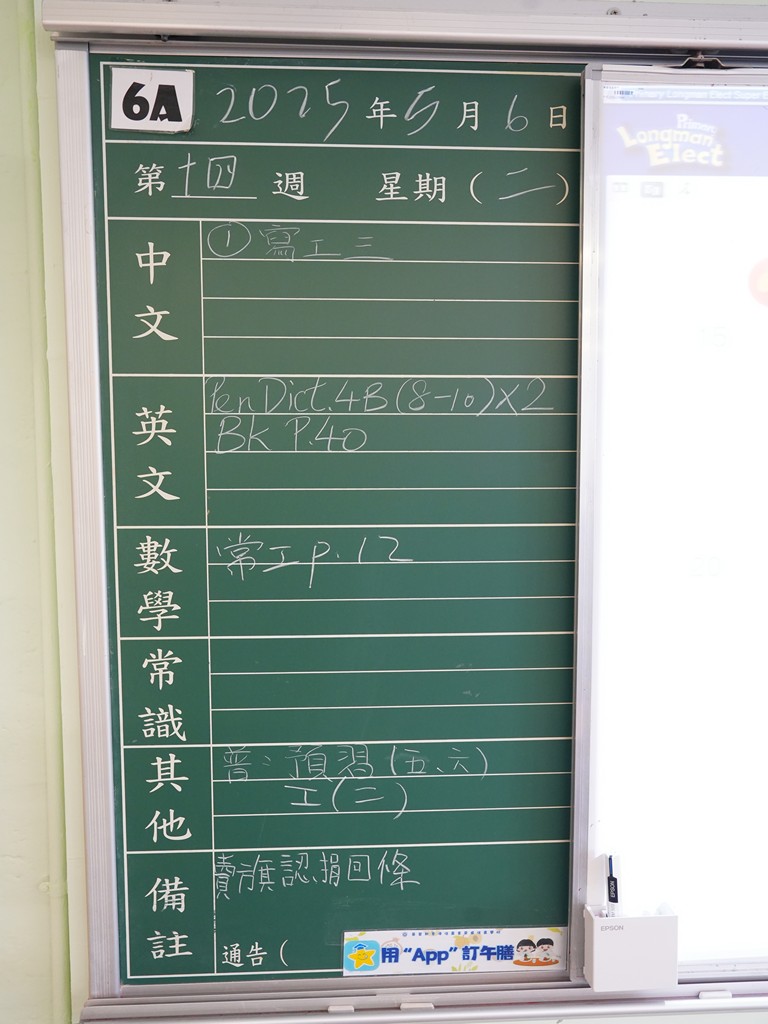 6A 2025年5月6日
第十四週 星期(二)
中文
①寫工三
英文
Pen Dict. 4B (8-10)×2
BK P.40
數學
常工p.12
常識
其他
普：預習(五、六)
工(二)
備註
賣旗認捐回條
通告(
用“App”訂午膳
Primary Longman Elect
EPSON
EPSON